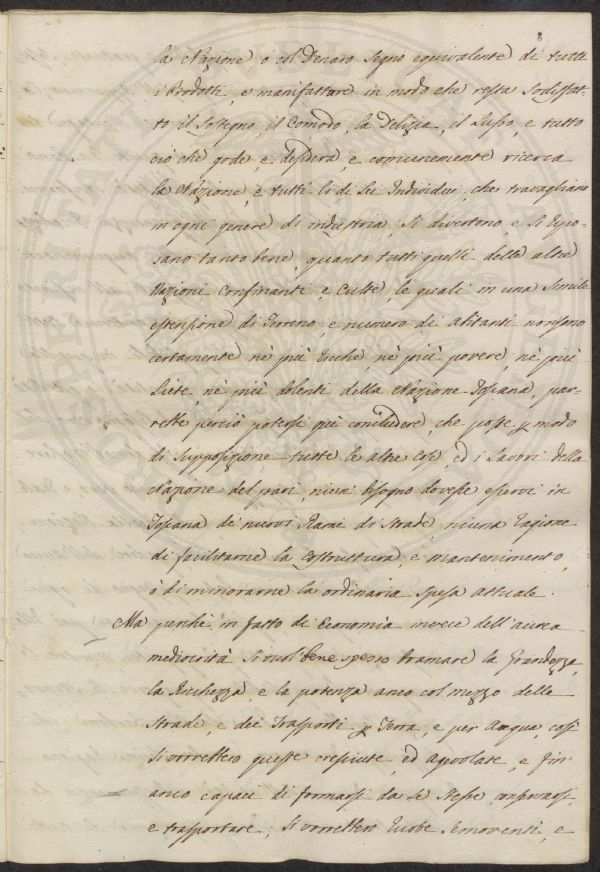 8
la Nazione o col Denaro segno equivalente di tutti
i Prodotti, e manifatture in modo che resta sodisfat-
to il sostegno, il Comodo, la Delizia, il Lusso, e tutto
ciò che gode, e desidera, e comunemente ricerca
la Nazione, e tutti li di Lei Individui, che travagliano
in ogni genere di industria, si divertono, e si ripo-
sano tanto bene, quanto tutti quelli delle altre
Nazioni confinanti e culte, le quali in una simile
estensione di Terreno e numero di abitanti non sono
certamente nè più ricche, nè più povere, nè più
liete nè più dolenti della Nazione Toscana, par-
rebbe perciò potersi quì concludere, che poste p modo
di supposizione tutte le altre cose, ed i lavori della
Nazione del pari, niun bisogno dovesse esservi in
Toscana di nuovi Rami di strade, niuna ragione
di facilitarne la costruttura, e mantenimento,
ò di minorarne la ordinaria spesa attuale.
Ma perchè in fatto di Economia invece dell'aurea
mediocrità si suol bene spesso bramare la Grandezza,
la Ricchezza, e la potenza anco col mezzo delle
strade, e dei Trasporti p Terra, e per Acqua, così
si vorrebbero queste cresciute, ed agevolate, e fin
anco capaci di formarsi da se stesse, conservarsi,
e trasportare; si vorrebbero Ruote semoventi, e